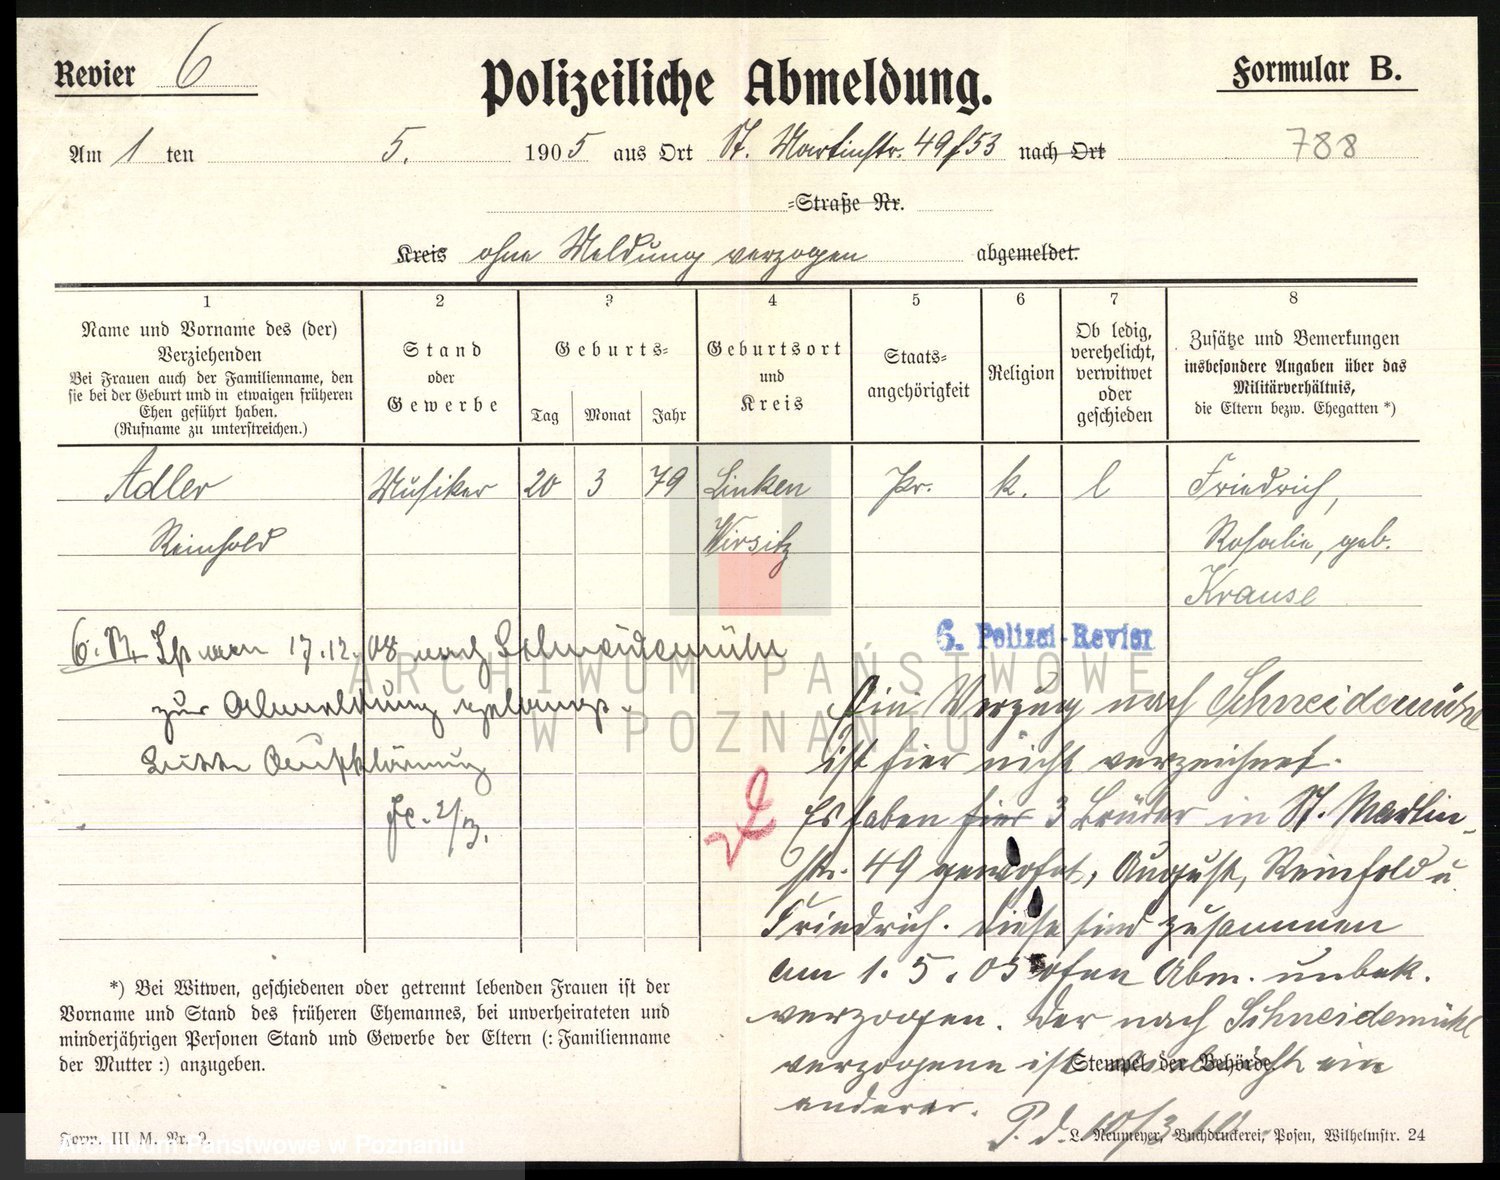 Revier 6
Polizeiliche Abmeldung.
Formular B.
Am 1 ten 5. 1905 aus Ort St. Martinstr. 49/53 nach Ort 788
=Straße Nr.
Kreis ohne Meldung verzogen abgemeldet.
1 2 3 4 5 6 7 8
Name und Vorname des (der)
Verziehenden
Bei Frauen auch der Familienname, den
sie bei der Geburt und in etwaigen früheren
Ehen geführt haben.
(Rufname zu unterstreichen.)
Stand
oder
Gewerbe
Geburts=
Tag Monat Jahr
Geburtsort
und
Kreis
Staats=
angehörigkeit
Religion
Ob ledig,
verehelicht,
verwitwet
oder
geschieden
Zusätze und Bemerkungen
insbesondere Angaben über das
Militärverhältnis,
die Eltern bezw. Ehegatten *)
Adler Musiker 20 3 79 Linken Pr. k. l Friedrich,
Reinhold Wirsitz Rosalie, geb.
Krause
6. R. Ist am 17.12.08 nach Schneidemühl
zur Abmeldung gelangt.
Bitte Aufklärung
2/3.
6. Polizei-Revier
Ein Verzug nach Schneidemühl
ist hier nicht verzeichnet.
Es haben hier 3 Brüder in St. Martin-
str. 49 gewohnt, August, Reinhold u.
Friedrich. Diese sind zusammen
am 1. 5. 05 ohne Abm. unbek.
verzogen. Der nach Schneidemühl
verzogene ist vielleicht ein
anderer.
P. d. 10/3.10.
*) Bei Witwen, geschiedenen oder getrennt lebenden Frauen ist der
Vorname und Stand des früheren Ehemannes, bei unverheirateten und
minderjährigen Personen Stand und Gewerbe der Eltern (: Familienname
der Mutter :) anzugeben.
Stempel der Behörde.
Form. III M. Nr. 9.
L. Neumeyer, Buchdruckerei, Posen, Wilhelmstr. 24
ARCHIWUM PAŃSTWOWE
W POZNANIU
Archiwum Państwowe w Poznaniu